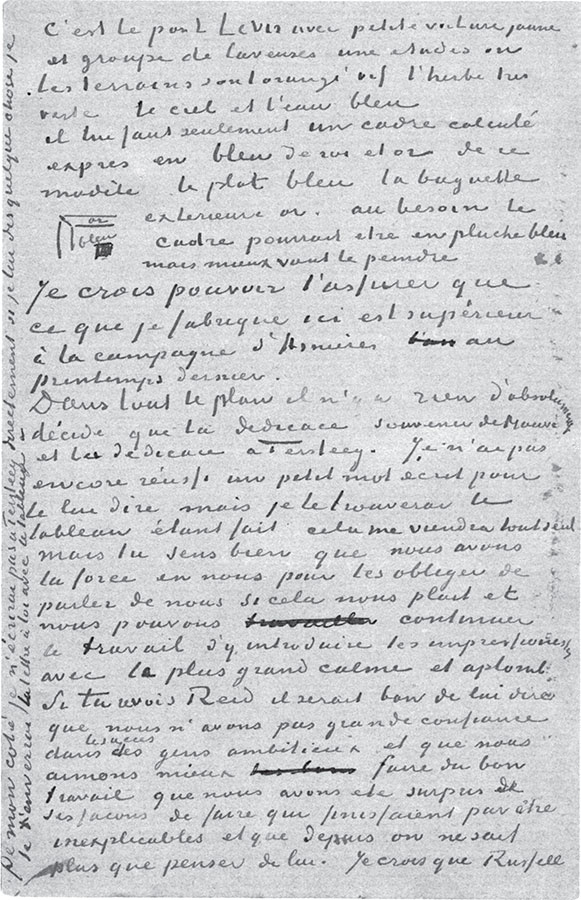 c'est le pont Levis avec petite voiture jaune
et groupe de laveuses une etudes ou
les terrains sont orangé vif l'herbe tres
verte le ciel et l'eau bleu
il lui faut seulement un cadre calculé
exprès en bleu de roi et or de ce
modèle le plat bleu la baguette
or
bleu
exterieure or. au besoin le
cadre pourrait etre en pluche bleu
mais mieux vaut le peindre
Je crois pouvoir t'assurer que
ce que je fabrique ici est supérieur
à la campagne d'Asnieres au
printemps dernier.
Dans tout le plan il n'y a rien d'absolument
décidé que la dedicace souvenir de Mauve
et la dedicace a Tersteeg. Je n'ai pas
encore réussi un petit mot ecrit pour
le lui dire mais je le trouverai le
tableau étant fait cela me viendra tout seul
mais tu sens bien que nous avons
la force en nous pour les obliger de
parler de nous si cela nous plait et
nous pouvons travailler continuer
le travail d'y introduire les impressionistes
avec le plus grand calme et aplomb.
Si tu vois Reid il serait bon de lui dire
que nous n'avons pas grande confiance
dans les gens ambitieux et que nous
aimons mieux faire du bon
travail que nous avons eté surpris de
ses façons de faire qui finissaient par être
inexplicables et que depuis on ne sait
plus que penser de lui. Je crois que Russell
De mon coté je n'écrirai pas a Tersteeg directement si je lui dis quelque chose je
je t'enverrai la lettre à lui avec le tableau